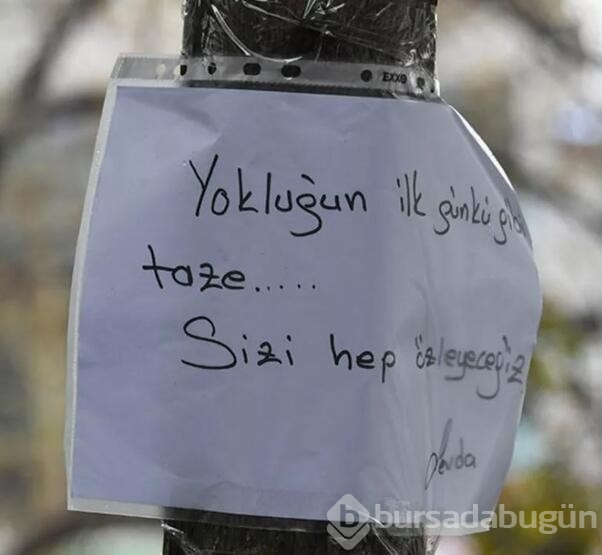 EXXO
Yokluğun ilk günkü gibi
taze.....
Sizi hep özleyeceğiz
Sevda
bursadabugün